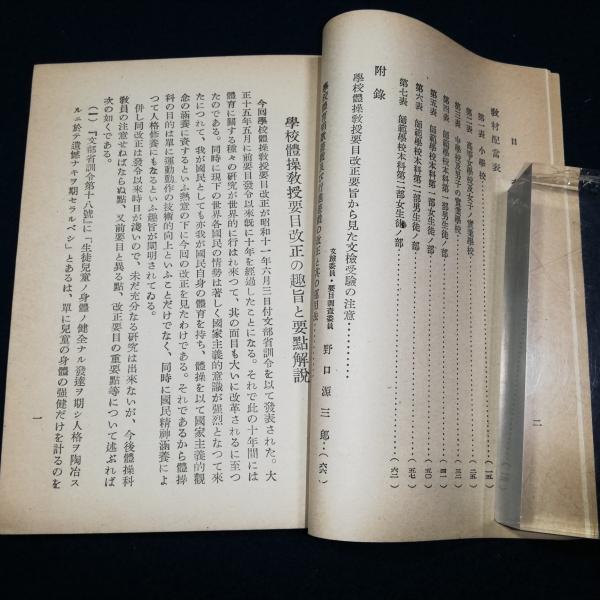 目
教材配當表
第一表 小學校………（一五）
第二表 高等女學校及女子ノ實業學校………（二五）
第三表 中學校及男子の實業學校………（三二）
第四表 師範學校本科第一部男生徒ノ部………（四一）
第五表 師範學校本科第一部女生徒ノ部………（五〇）
第六表 師範學校本科第二部男生徒ノ部………（五七）
第七表 師範學校本科第二部女生徒ノ部………（六二）
附錄
學校體操敎授要目改正要旨から見た文檢受驗の注意………
文檢委員・要目調査委員 野口源三郎………（六八）
二
學校體操敎授要目改正の趣旨と要點解說
今回學校體操敎授要目改正が昭和十一年六月三日付文部省訓令を以て發表された。大
正十五年五月に前要目發令以來旣に十年を經過したことになる。それで此の十年間には
體育に關する種々の硏究が世界的に行はれ來つて、其の面目も大いに改革されるに至つ
たのである。同時に現下の世界各國民の情勢は著しく國家主義的意識が强烈となつて來
たにつれて、我が國民としても亦我が國民自身の體育を持ち、體操を以て國家主義的觀
念の涵養に資するといふ熱意の下に今回の改正を見たわけである。それであるから體操
科の目的は單に運動動作の技術的向上といふことだけでなく、同時に國民精神涵養によ
つて人格修養にもなるといふ趣旨が闡明されてゐる。
併し同改正は發令以來時日が淺いので、未だ充分なる硏究は出來ないが、今後體操科
敎員の注意せねばならぬ點、又前要目と異る點、改正要目の重要點等について述ぶれば
次の如くである。
（一）『文部省訓令第十八號』に「生徒兒童ノ身體ノ健全ナル發達ヲ期シ人格ヲ陶冶ス
ルニ於テ遺憾ナキヲ期セラルベシ」とあるは、單に兒童の身體の强健だけを計るのを
一